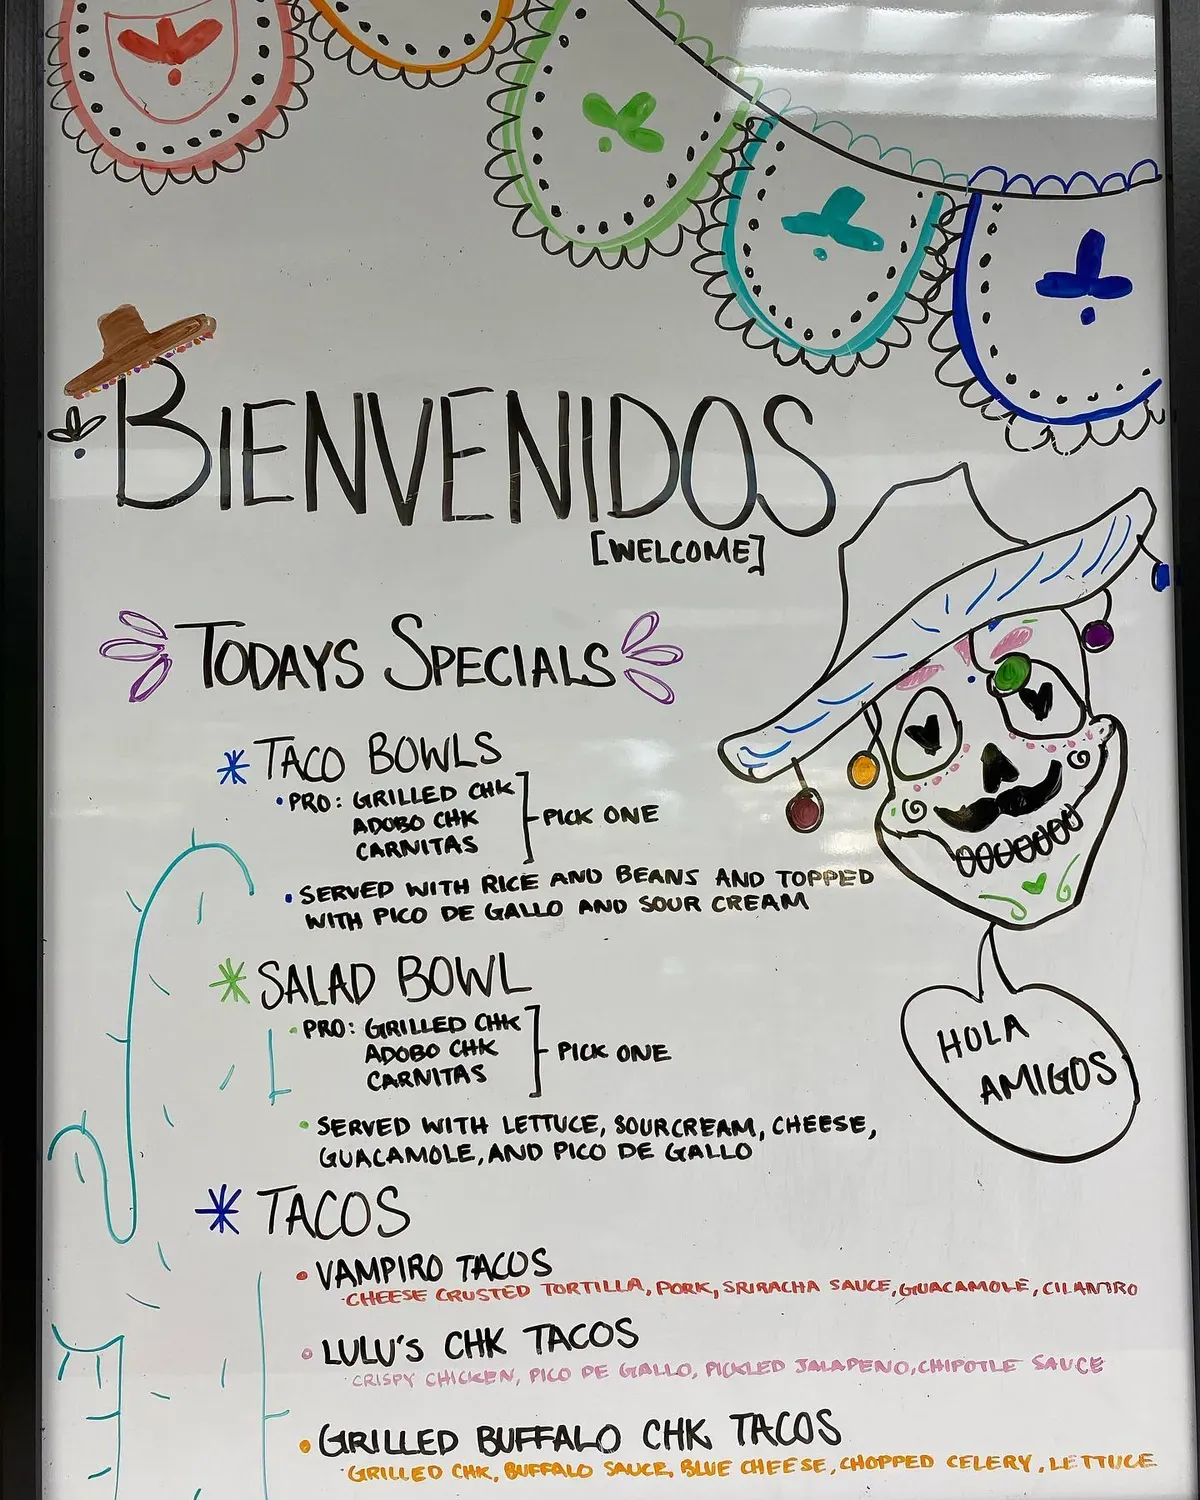 BIENVENIDOS
[WELCOME]
TODAYS SPECIALS
* TACO BOWLS
• PRO: GRILLED CHK
ADOBO CHK
CARNITAS
PICK ONE
• SERVED WITH RICE AND BEANS AND TOPPED
WITH PICO DE GALLO AND SOUR CREAM
* SALAD BOWL
• PRO: GRILLED CHK
ADOBO CHK
CARNITAS
PICK ONE
• SERVED WITH LETTUCE, SOURCREAM, CHEESE,
GUACAMOLE, AND PICO DE GALLO
HOLA
AMIGOS
* TACOS
• VAMPIRO TACOS
CHEESE CRUSTED TORTILLA, PORK, SRIRACHA SAUCE, GUACAMOLE, CILANTRO
• LULU'S CHK TACOS
CRISPY CHICKEN, PICO DE GALLO, PICKLED JALAPENO, CHIPOTLE SAUCE
• GRILLED BUFFALO CHK TACOS
GRILLED CHK, BUFFALO SAUCE, BLUE CHEESE, CHOPPED CELERY, LETTUCE